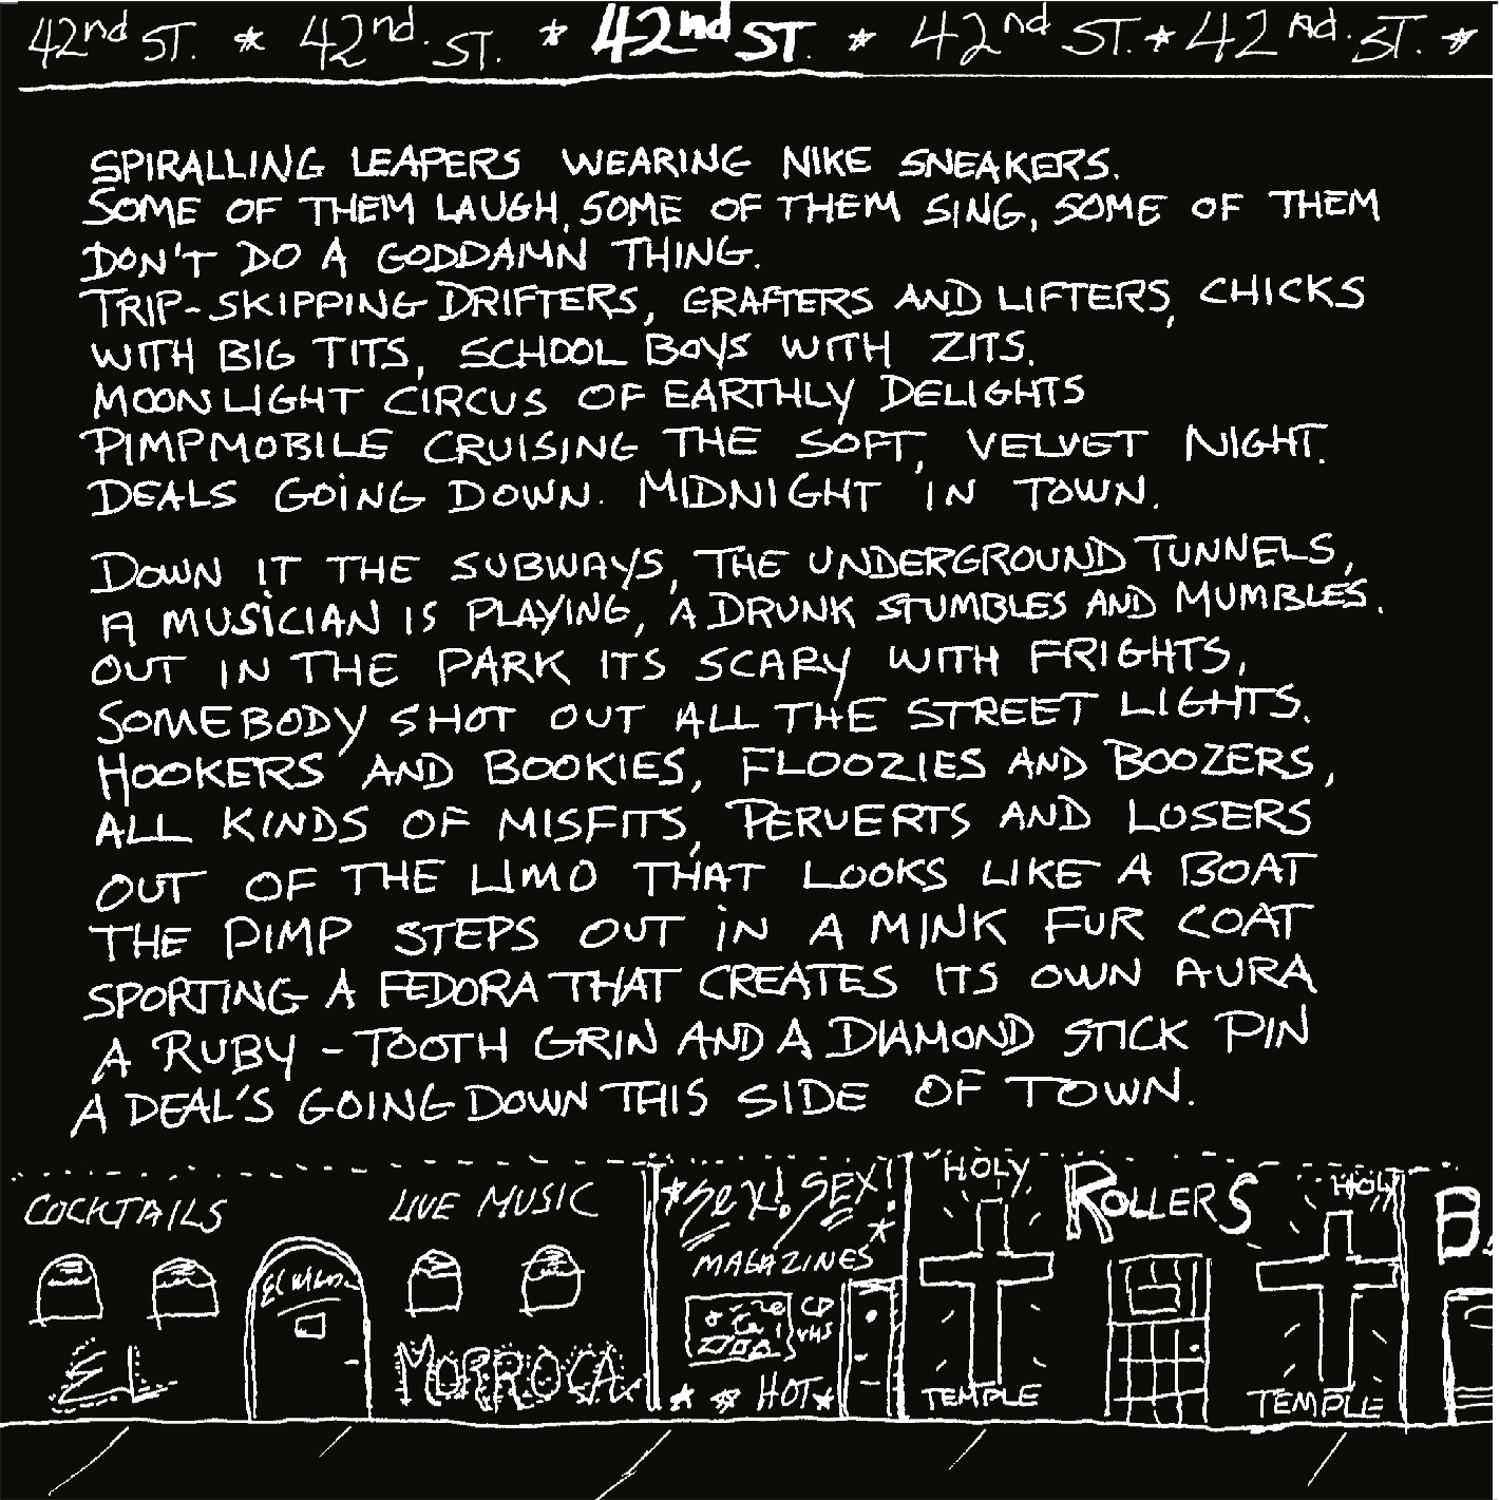 42nd ST. * 42nd. ST. * 42nd ST. * 42nd ST. * 42nd. ST. *
SPIRALLING LEAPERS WEARING NIKE SNEAKERS.
SOME OF THEM LAUGH, SOME OF THEM SING, SOME OF THEM
DON'T DO A GODDAMN THING.
TRIP-SKIPPING DRIFTERS, GRAFTERS AND LIFTERS, CHICKS
WITH BIG TITS, SCHOOL BOYS WITH ZITS.
MOONLIGHT CIRCUS OF EARTHLY DELIGHTS
PIMPMOBILE CRUISING THE SOFT, VELVET NIGHT.
DEALS GOING DOWN. MIDNIGHT IN TOWN.
DOWN IT THE SUBWAYS, THE UNDERGROUND TUNNELS,
A MUSICIAN IS PLAYING, A DRUNK STUMBLES AND MUMBLES.
OUT IN THE PARK ITS SCARY WITH FRIGHTS,
SOMEBODY SHOT OUT ALL THE STREET LIGHTS.
HOOKERS AND BOOKIES, FLOOZIES AND BOOZERS,
ALL KINDS OF MISFITS, PERVERTS AND LOSERS
OUT OF THE LIMO THAT LOOKS LIKE A BOAT
THE PIMP STEPS OUT IN A MINK FUR COAT
SPORTING A FEDORA THAT CREATES ITS OWN AURA
A RUBY-TOOTH GRIN AND A DIAMOND STICK PIN
A DEAL'S GOING DOWN THIS SIDE OF TOWN.
COCKTAILS
LIVE MUSIC
EL
MORROCA
*SEX! SEX!*
MAGAZINES
CD
VHS
* * HOT *
HOLY
ROLLERS
HOLY
TEMPLE
TEMPLE
B